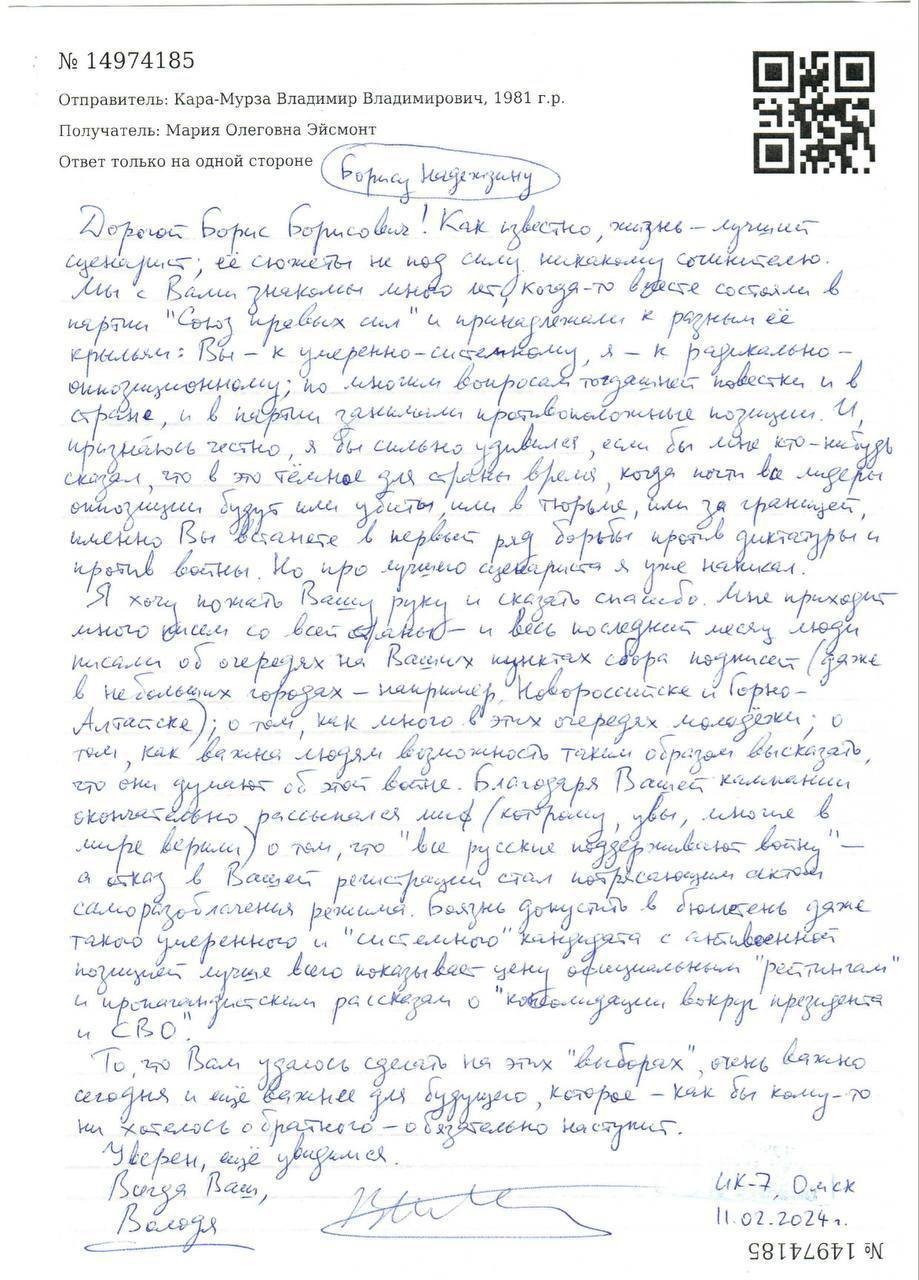 № 14974185
Отправитель: Кара-Мурза Владимир Владимирович, 1981 г.р.
Получатель: Мария Олеговна Эйсмонт
Ответ только на одной стороне
Борису Надеждину
Дорогой Борис Борисович! Как известно, жизнь – лучший
сценарист; её сюжеты не под силу никакому сочинителю.
Мы с Вами знакомы много лет, когда-то вместе состояли в
партии "Союз правых сил" и принадлежали к разным её
крыльям: Вы – к умеренно-системному, я – к радикально-
оппозиционному; по многим вопросам тогдашней повестки и в
стране, и в партии занимали противоположные позиции. И,
признаюсь честно, я бы сильно удивился, если бы мне кто-нибудь
сказал, что в это тёмное для страны время, когда почти все лидеры
оппозиции будут или убиты, или в тюрьме, или за границей,
именно Вы встанете в первый ряд борьбы против диктатуры и
против войны. Но про лучшего сценариста я уже написал.
Я хочу пожать Вашу руку и сказать спасибо. Мне приходит
много писем со всей страны – и весь последний месяц люди
писали об очередях на Ваших пунктах сбора подписей (даже
в небольших городах – например, Новороссийске и Горно-
Алтайске); о том, как много в этих очередях молодёжи; о
том, как важна людям возможность таким образом высказать,
что они думают об этой войне. Благодаря Вашей кампании
окончательно рассыпался миф (которому, увы, многие в
мире верили) о том, что "все русские поддерживают войну" –
а отказ в Вашей регистрации стал потрясающим актом
саморазоблачения режима. Боязнь допустить в бюллетень даже
такого умеренного и "системного" кандидата с антивоенной
позицией лучше всего показывает цену официальным "рейтингам"
и пропагандистским рассказам о "консолидации вокруг президента
и СВО".
То, что Вам удалось сделать на этих "выборах", очень важно
сегодня и ещё важнее для будущего, которое – как бы кому-то
ни хотелось обратного – обязательно наступит.
Уверен, ещё увидимся.
Всегда Ваш,
Володя
ИК-7, Омск
11.02.2024 г.
№ 14974185